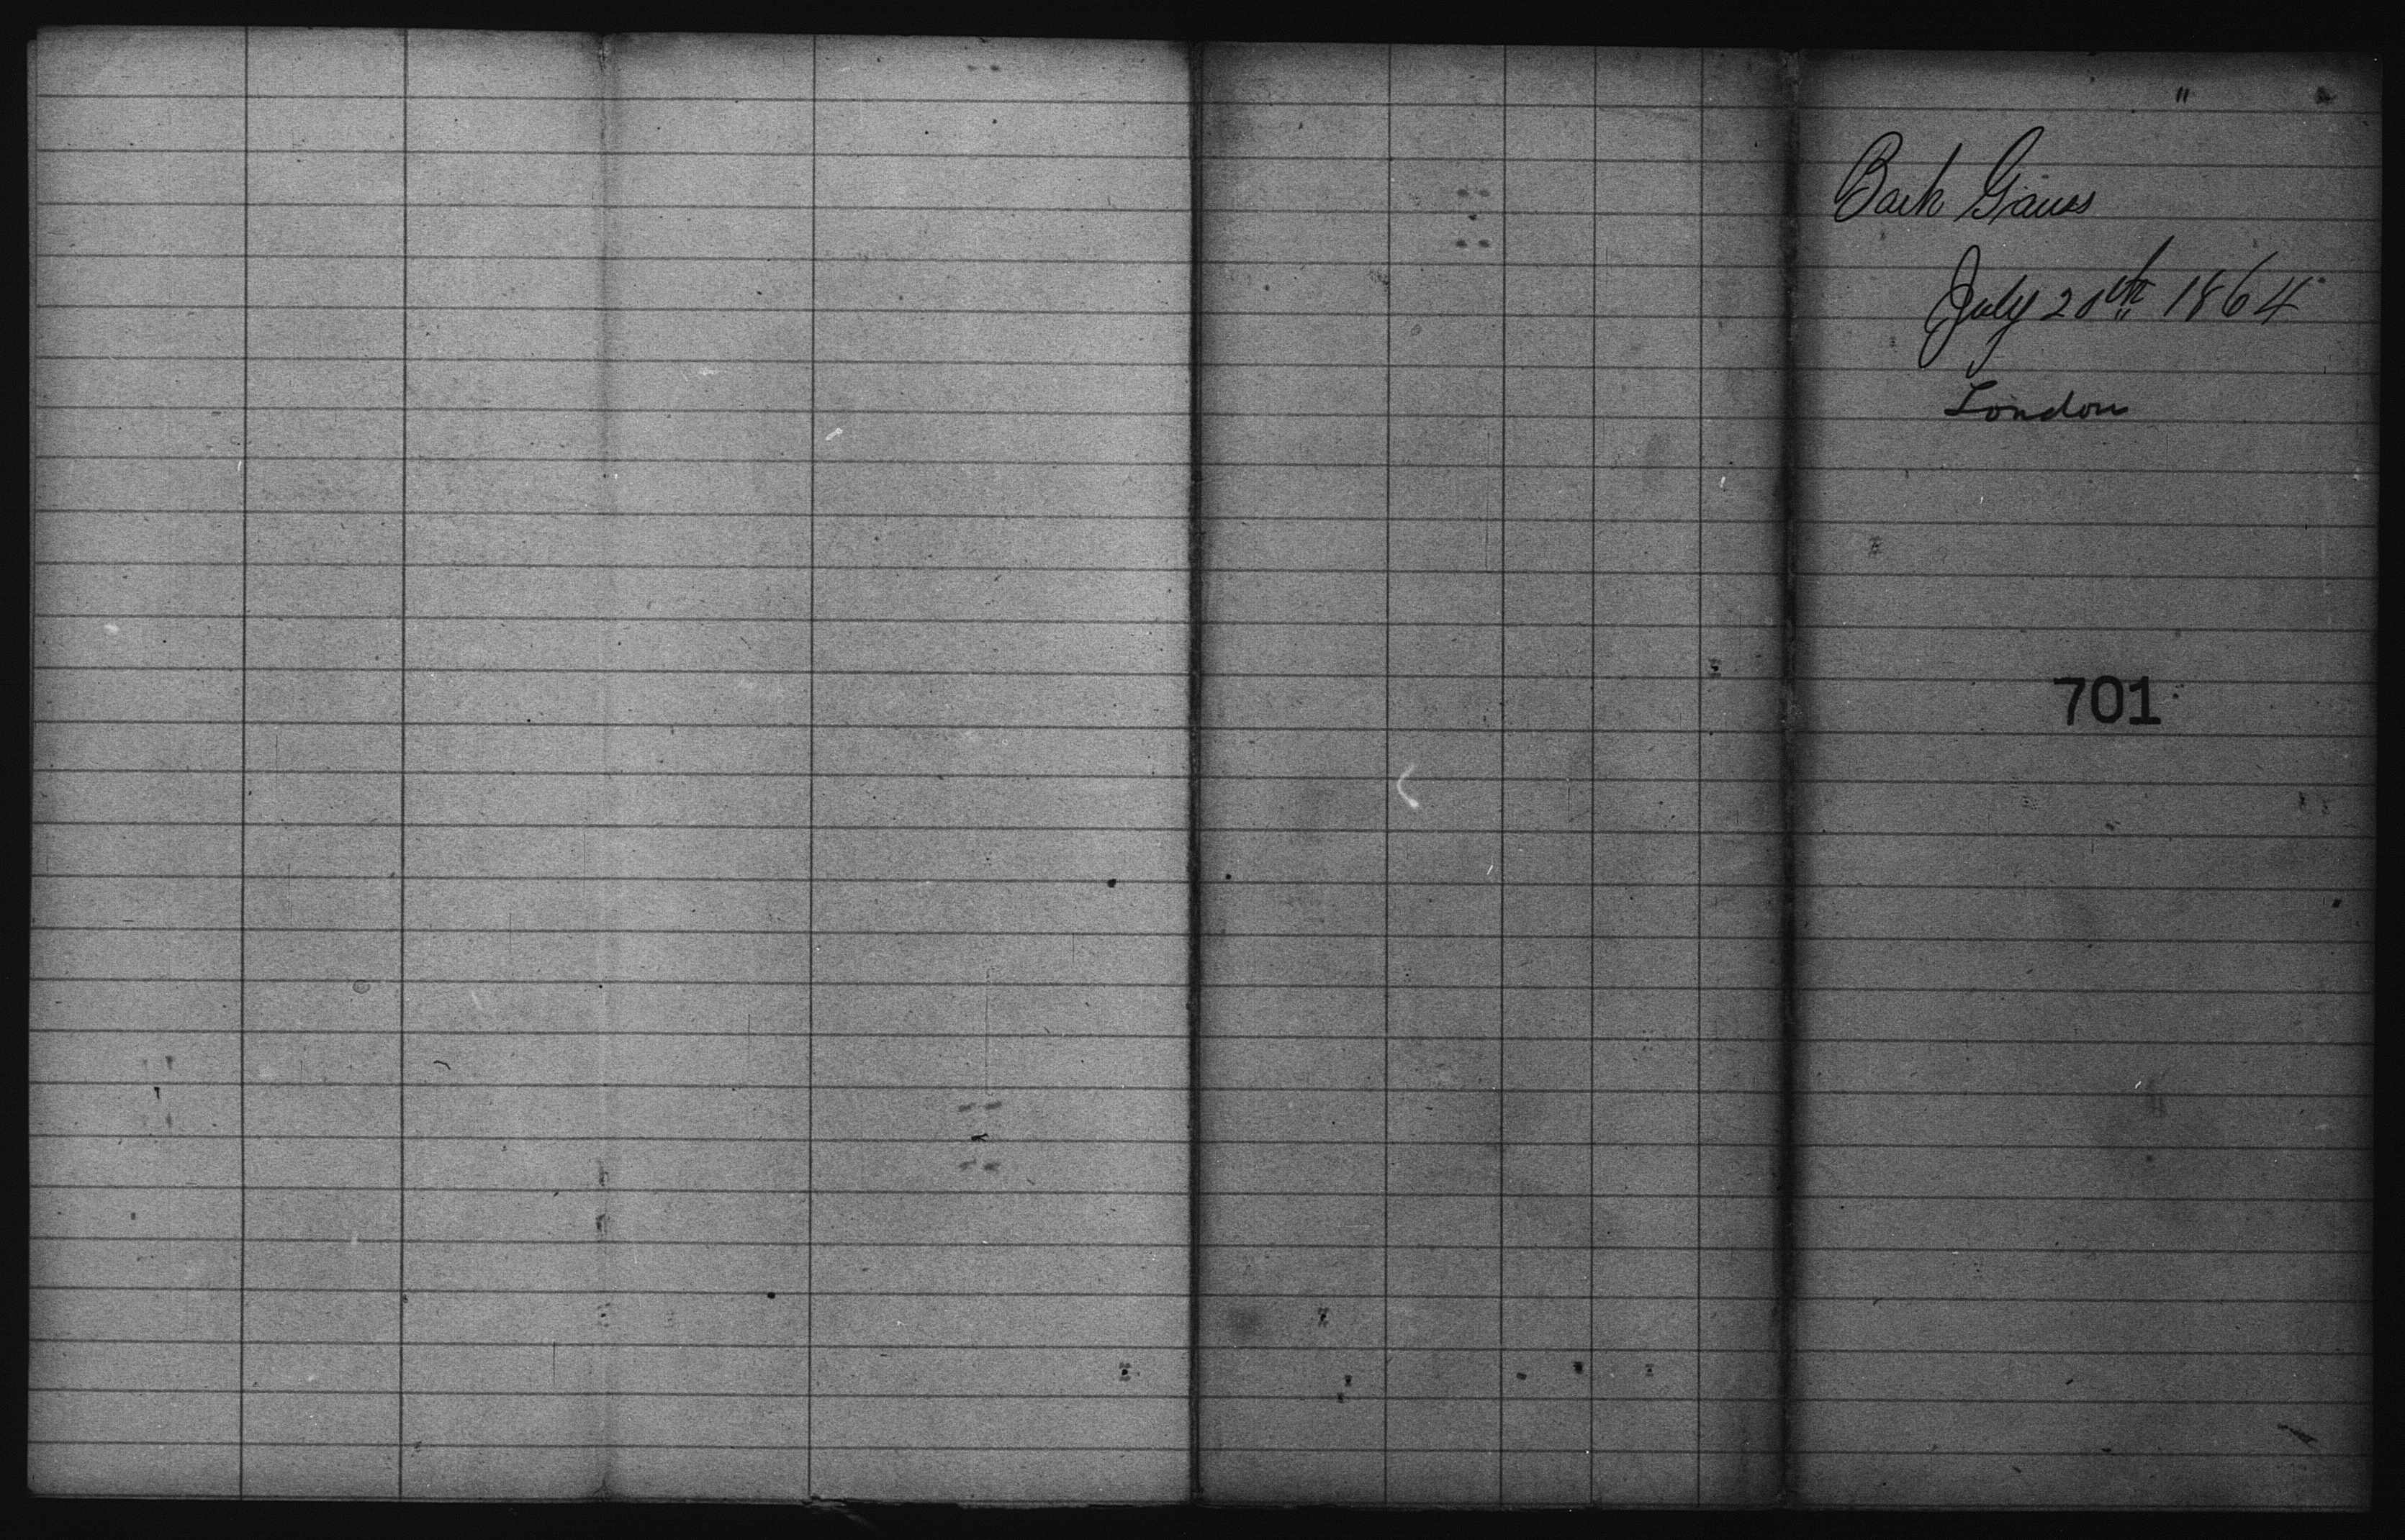 Bark Gauss
July 20th 1864
London
701